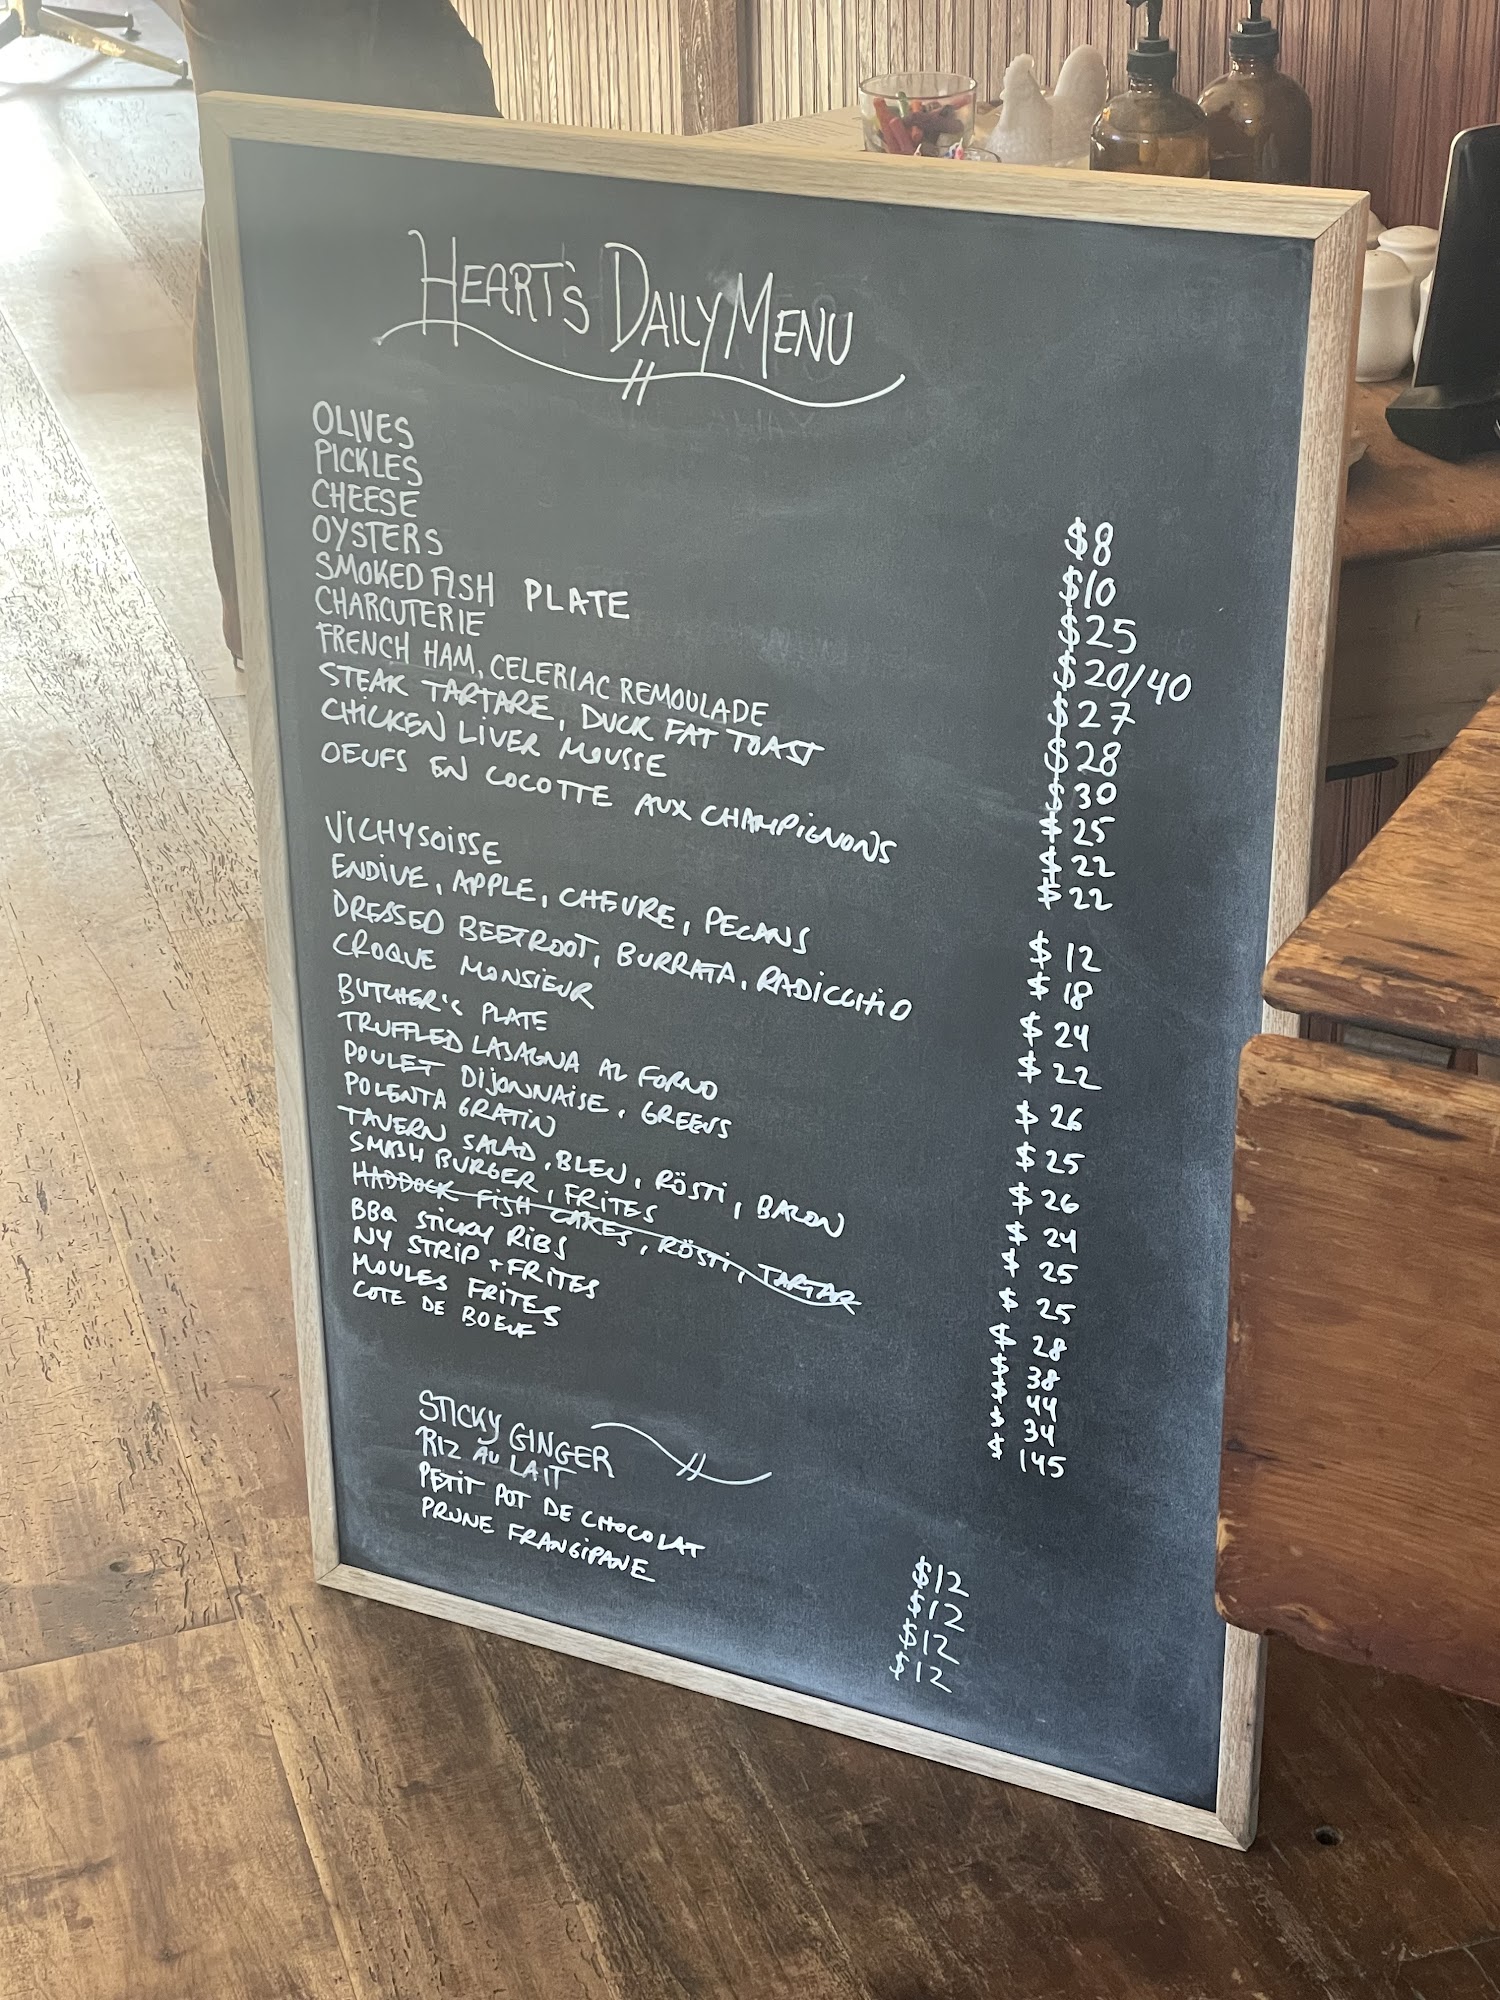 HEART'S DAILY MENU
OLIVES $8
PICKLES $10
CHEESE $25
OYSTERS $20/40
SMOKED FISH PLATE $27
CHARCUTERIE $28
FRENCH HAM, CELERIAC REMOULADE $30
STEAK TARTARE, DUCK FAT TOAST $25
CHICKEN LIVER MOUSSE $22
OEUFS EN COCOTTE AUX CHAMPIGNONS $22
VICHYSOISSE $12
ENDIVE, APPLE, CHEVRE, PECANS $18
DRESSED BEETROOT, BURRATA, RADICCHIO $24
CROQUE MONSIEUR $22
BUTCHER'S PLATE $26
TRUFFLED LASAGNA AL FORNO $25
POULET DIJONNAISE, GREENS $26
POLENTA GRATIN $24
TAVERN SALAD, BLEU, RÖSTI, BACON $25
SMASH BURGER, FRITES $25
HADDOCK FISH CAKES, RÖSTI, TARTAR $28
BBQ STICKY RIBS $38
NY STRIP + FRITES $44
MOULES FRITES $34
COTE DE BOEUF $145
STICKY GINGER $12
RIZ AU LAIT $12
PETIT POT DE CHOCOLAT $12
PRUNE FRANGIPANE $12